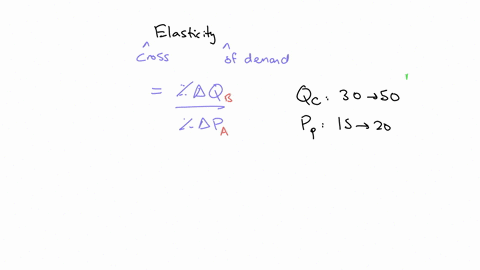 Elasticity
^ cross ^ of demand
= %ΔQB
%ΔPA
Qc: 30→50
Pp: 15→20